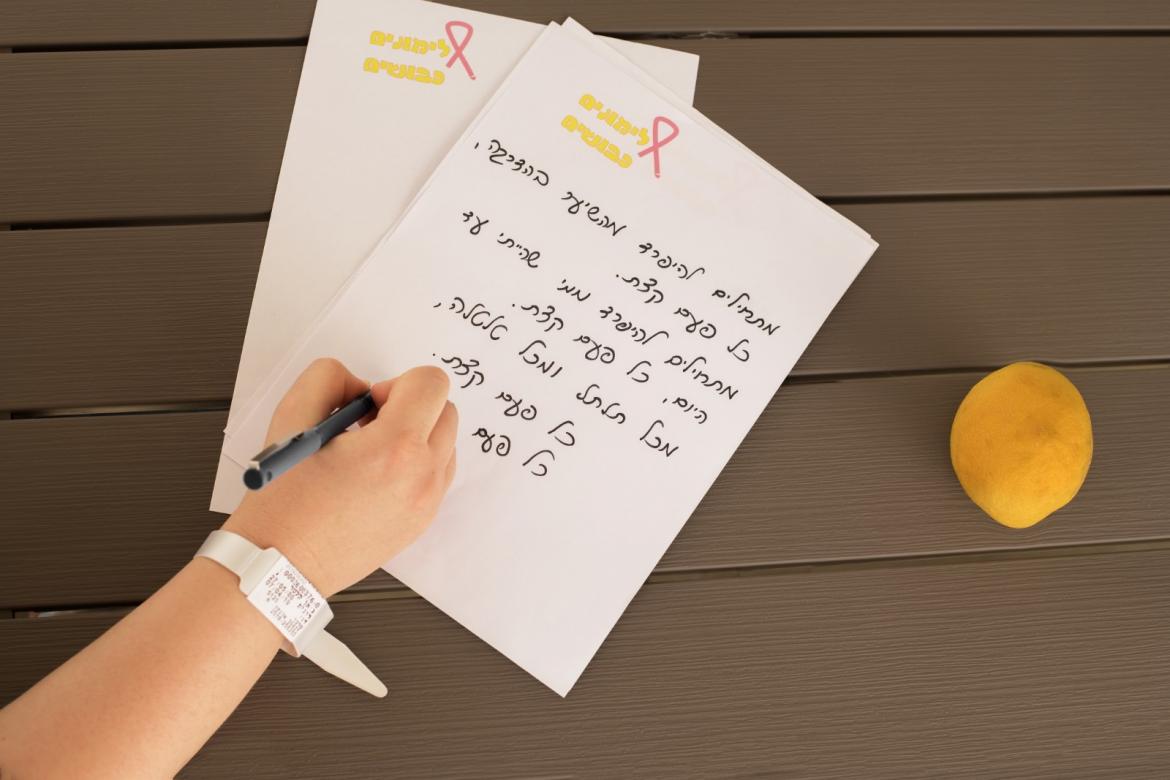 לימונים
כבושים
לימונים
כבושים
מתחילים להיפרד מהשיער בהדרגה,
כל פעם קצת.
מתחילים להיפרד ממי שהייתי עד
היום, כל פעם קצת.
מכל תלתל ומכל טלטלה,
כל פעם קצת.
כל פעם